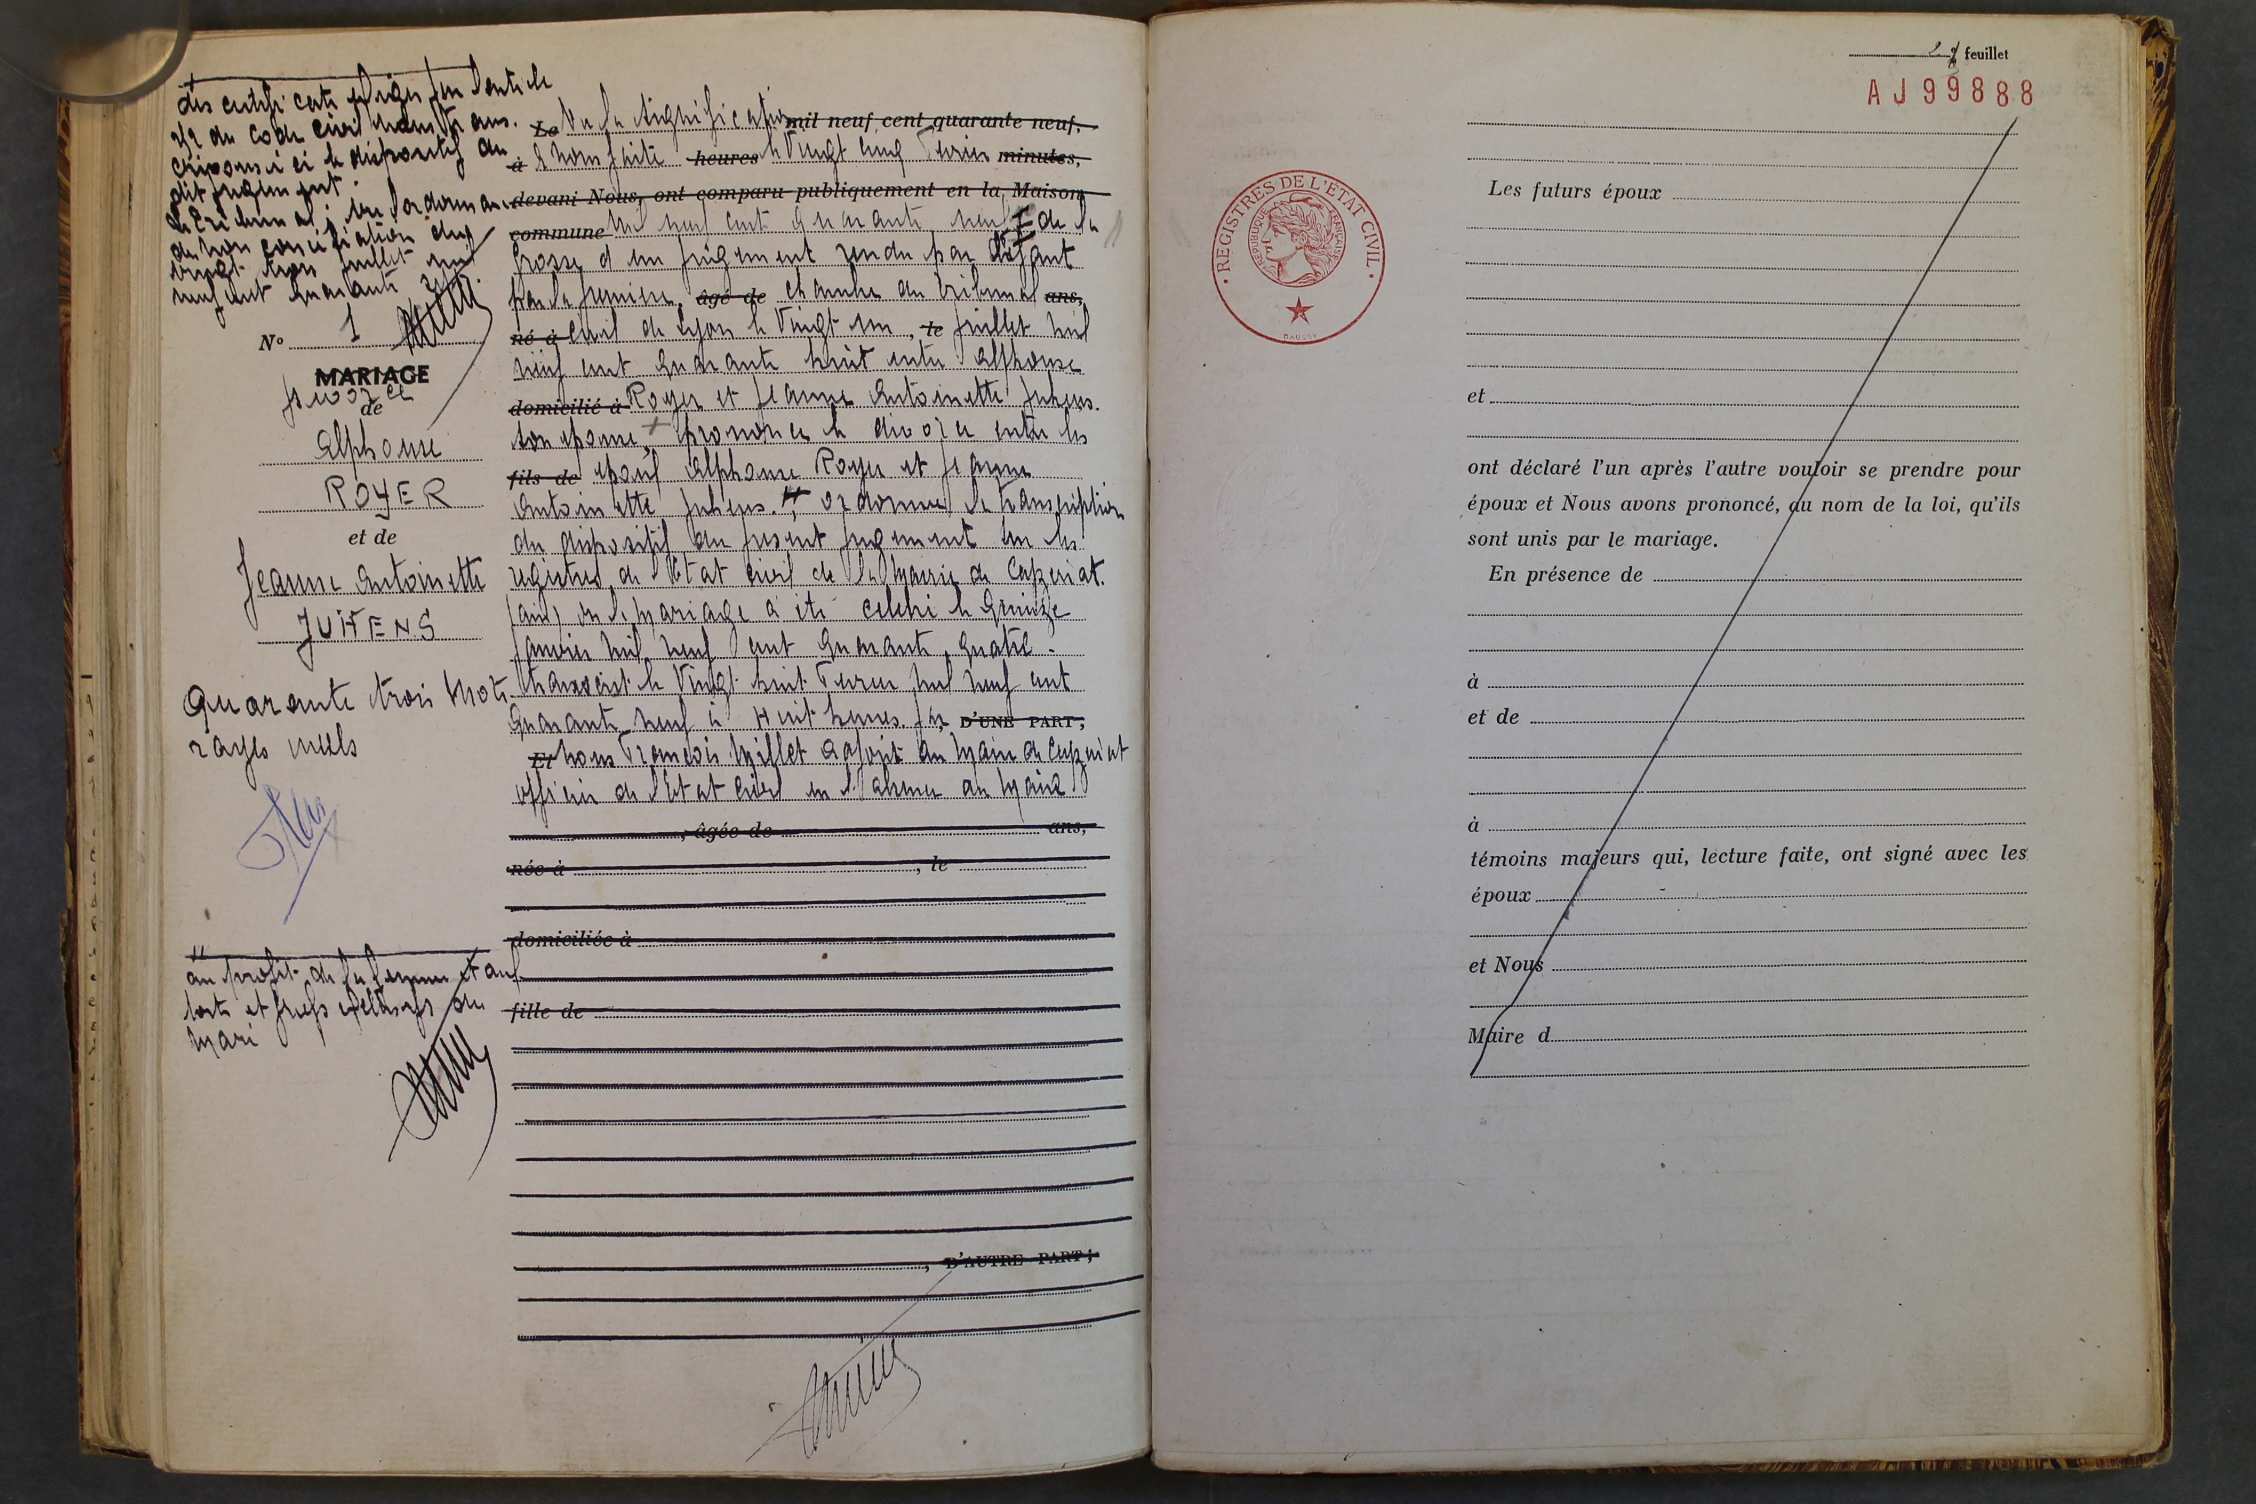 des certificats exigés par l'article
du code civil
ci le dispositif du
dit jugement
vu l'ordonnance
de non conciliation du
vingt trois juillet mil
neuf cent quarante
N° 1
MARIAGE
divorce
de
Alphonse
ROYER
et de
Jeanne Antoinette
JUHENS
Quarante trois mots
rayés nuls
au profit de la femme et aux
torts et griefs exclusifs du
mari
Le Vu la signification mil neuf cent quarante neuf,
à à nous faite heures le Vingt cinq Février minutes,
devant Nous, ont comparu publiquement en la Maison
commune mil neuf cent quarante neuf de la
Grosse d'un jugement rendu par défaut
par la première âgé de chambre du tribunal ans,
né à civil de Lyon le Vingt un, le juillet mil
neuf cent quarante huit entre Alphonse
domicilié à Royer et Jeanne Antoinette Juhens.
son épouse, prononce le divorce entre les
fils de époux Alphonse Royer et Jeanne
Antoinette Juhens. ordonne la transcription
du dispositif du présent jugement sur les
registres de l'Etat civil de la Mairie de Cuzieu
(Ain) où le mariage a été célébré le Quinze
Janvier mil neuf cent quarante quatre.
transcrit le Vingt huit Février mil neuf cent
Quarante neuf à Huit heures par D'UNE PART;
Et nous François Millet adjoint au Maire de
officier de l'Etat Civil en l'absence du Maire
, âgée de ans,
née à , le
domiciliée à
fille de
, D'AUTRE PART;
feuillet
AJ99888
REGISTRES DE L'ETAT CIVIL
REPUBLIQUE FRANÇAISE
Les futurs époux
et
ont déclaré l'un après l'autre vouloir se prendre pour
époux et Nous avons prononcé, au nom de la loi, qu'ils
sont unis par le mariage.
En présence de
à
et de
à
témoins majeurs qui, lecture faite, ont signé avec les
époux
et Nous
Maire d